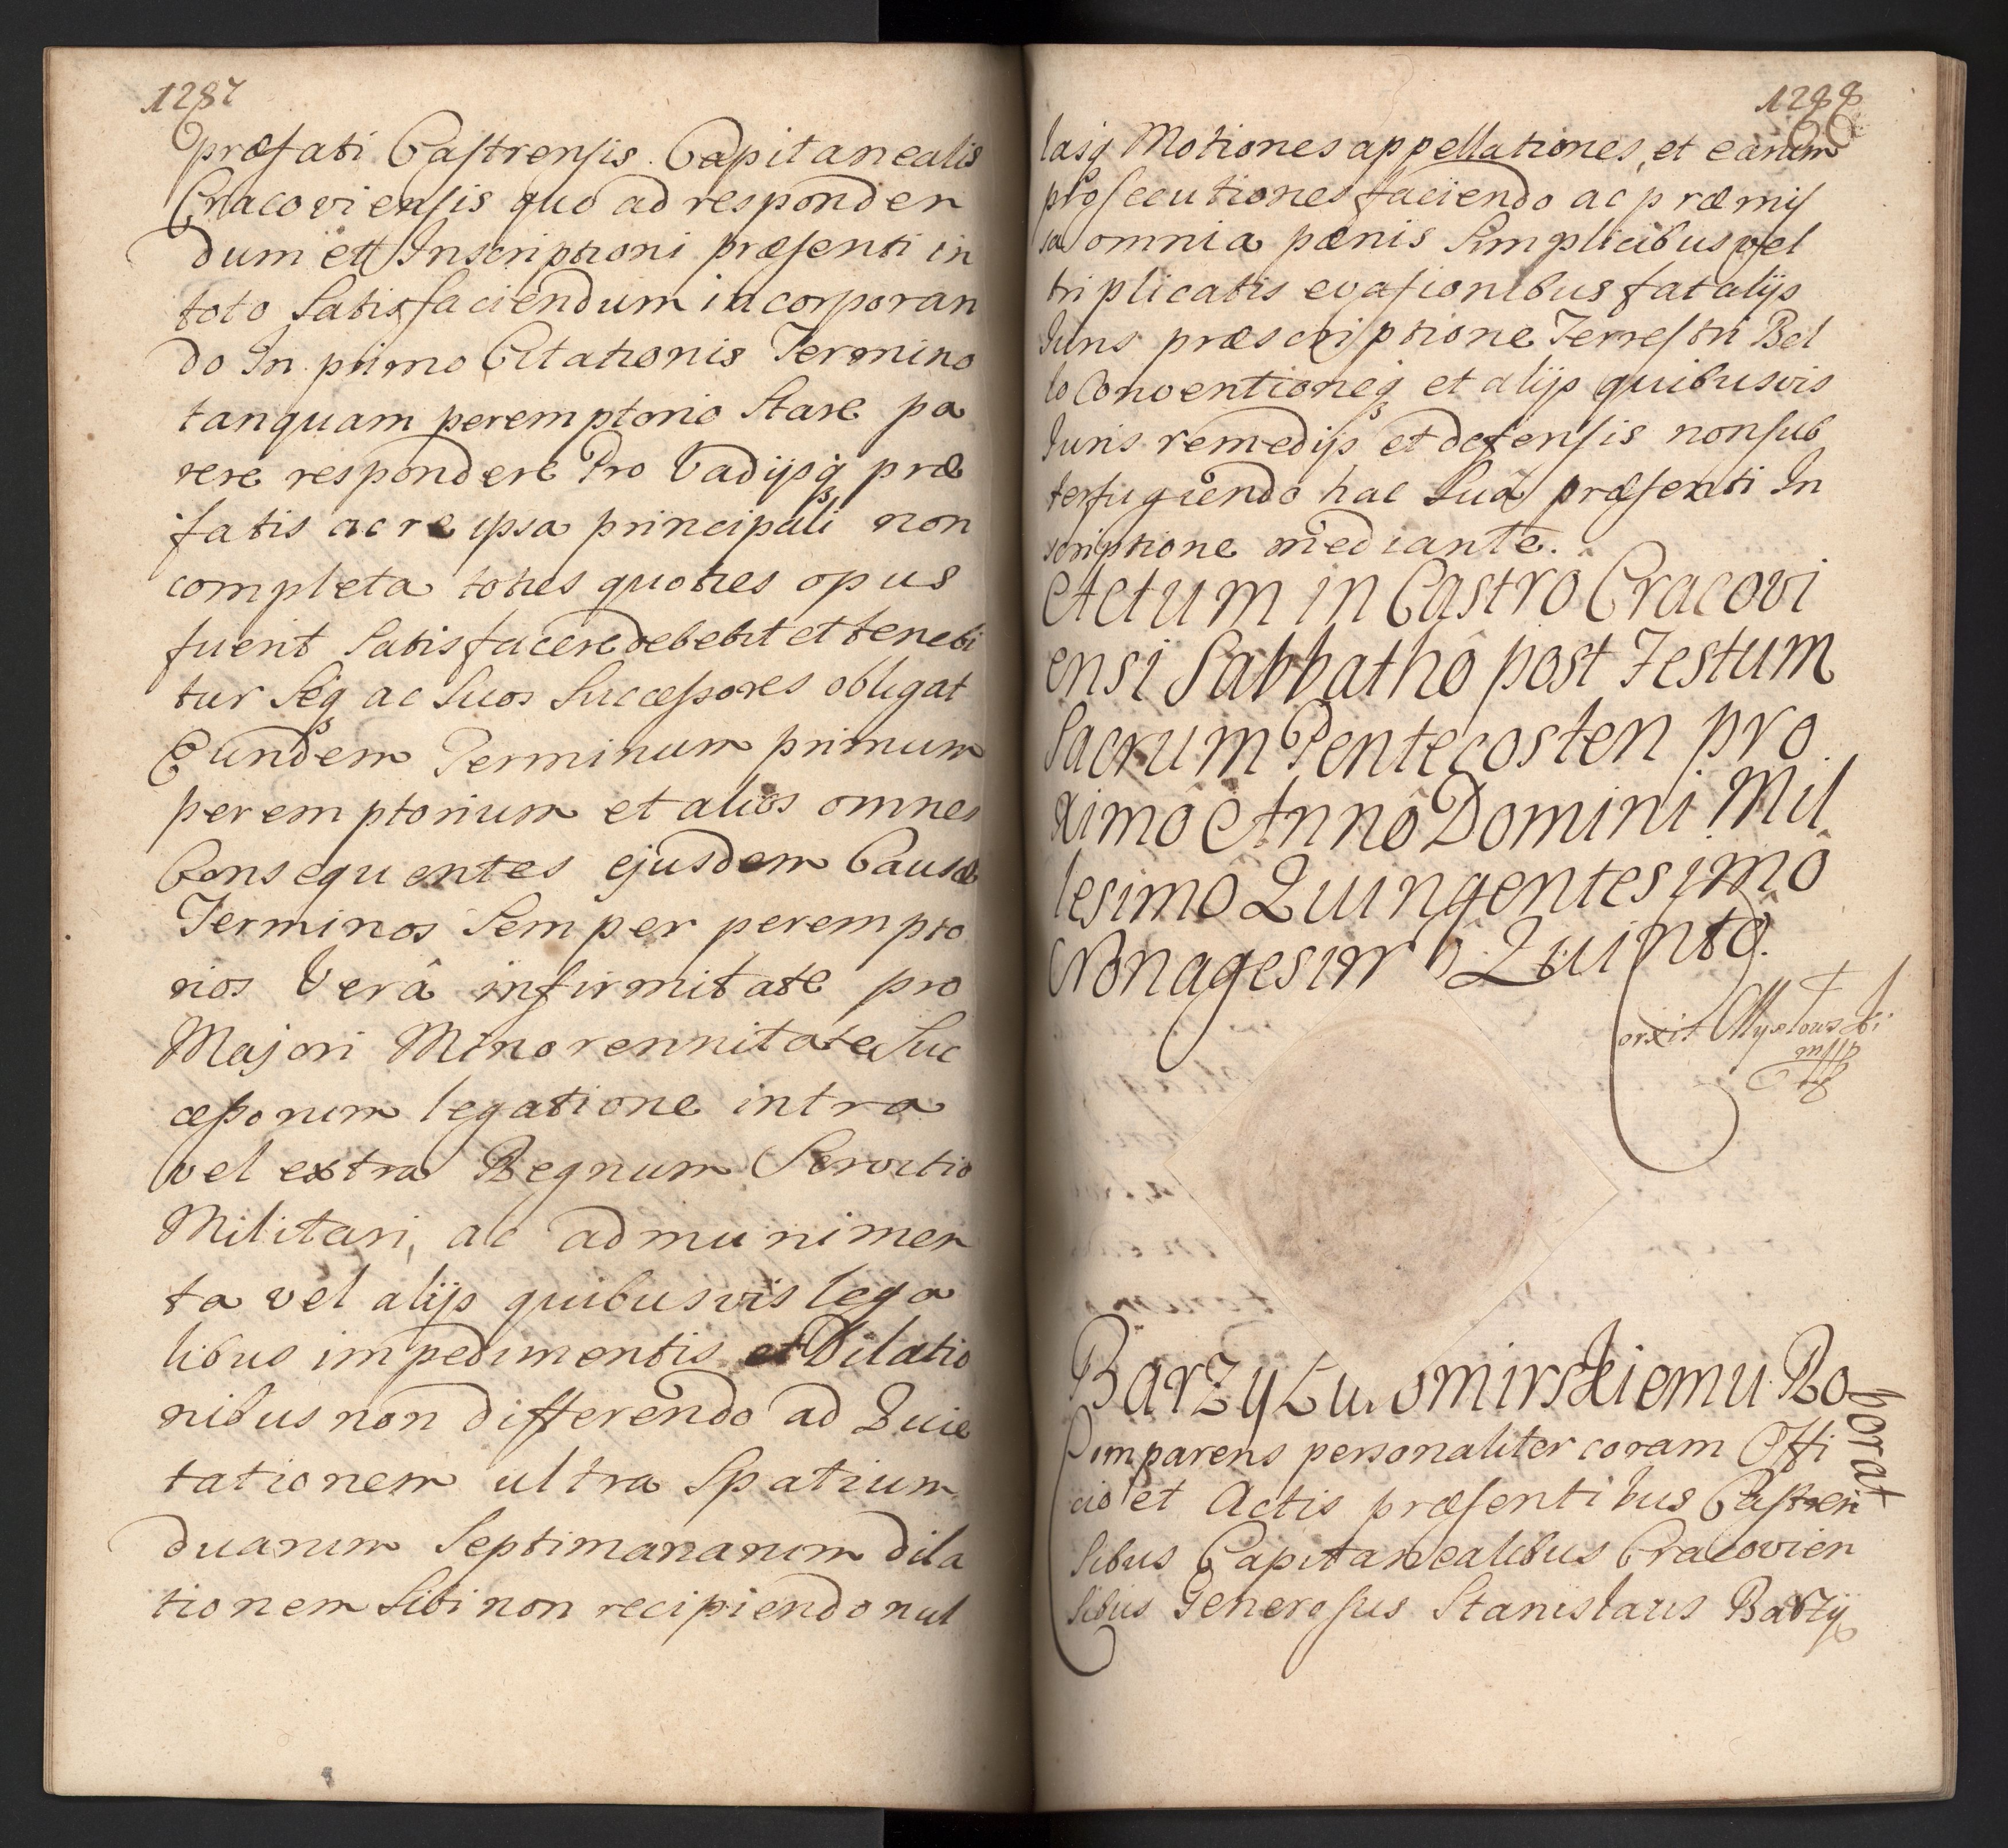 1287
præfati Castrensis Capitanealis
Cracoviensis quo ad responden
dum ett Inscriptioni præsenti in
toto Satisfaciendum incorporan
do In primo Citationis Termino
tanquam peremptorio Stare pa
rere respondere Pro Vadijsq præ
fatis ac re ipsa principali non
completa toties quoties opus
fuerit Satisfacere debebit et tenebi
tur Seq ac Suos Successores obligat
Eundem Terminum primum
peremptorium et alios omnes
Consequentes ejusdem Causæ
Terminos Semper perempto
rios Verâ infirmitate pro
Majori Minorennitate Suc
cessorum legatione intra
vel extra Regnum Servitio
Militari, ac ad munimen
ta vel alijs quibusvis lega
libus impedimentis et Dilatio
nibus non differendo ad Quie
tationem ultra Spatium
duarum Septimanarum dila
tionem Sibi non recipiendo nul
1288
lasq Motiones appellationes, et earum
prosecutiones faciendo ac præmis
sa omnia pænis Simplicibus vel
triplicatis evasionibus fatalijs
Iuris præscriptione Terrestri Bel
lo Conventioneq et alijs quibusvis
Iuris remedijs et defensis non sub
terfugiendo hac Suâ præsenti In
scriptione mediante.
Actum in Castro Cracovi
ensi Sabbathô post Festum
Sacrum Pentecosten pro
ximô Annô Domini Mil
lesimô Quingentesimô
Nonagesimo Quintô.
Barzy Lutomirskiemu Ro
borat
Comparens personaliter coram Offi
cio et Actis præsentibus Castren
sibus Capitanealibus Cracovien
sibus Generosus Stanislaus Barzÿ